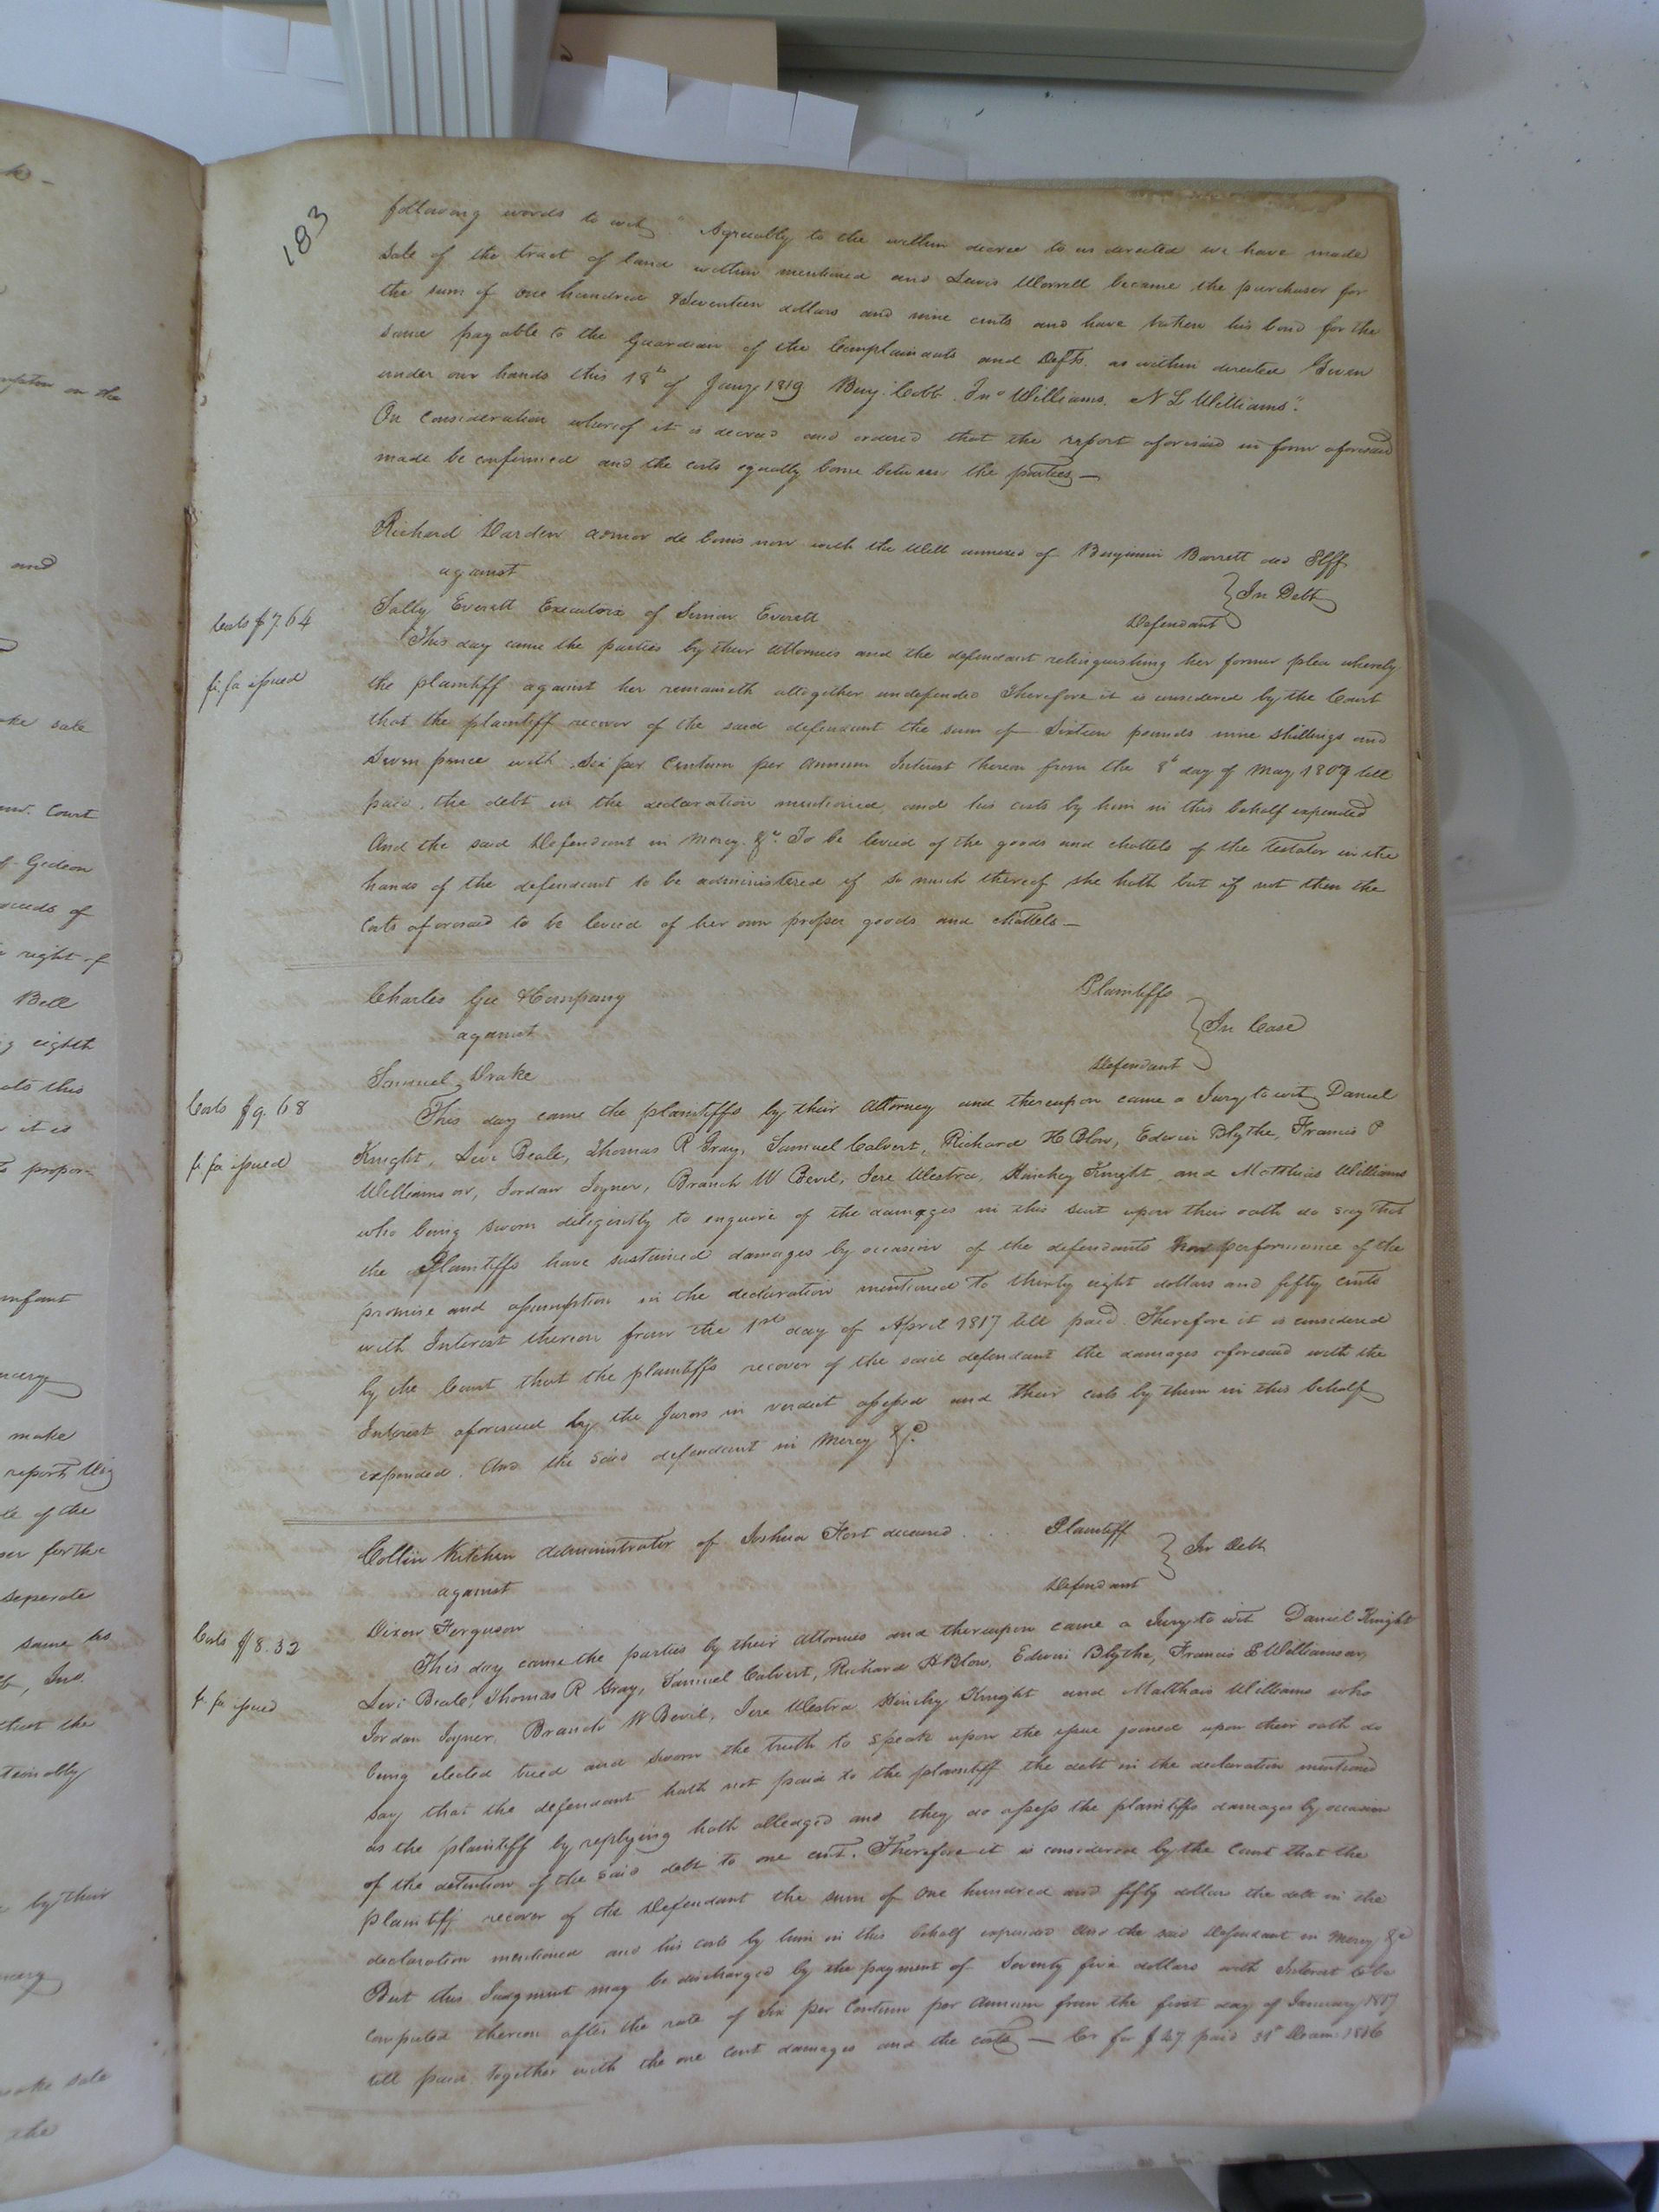 183
following words to wit, "Agreeably to the within decree to us directed we have made
sale of the tract of land within mentioned and Lewis Worrell became the purchaser for
the sum of one hundred & Seventeen dollars and nine cents and have taken his bond for the
same payable to the Guardian of the Complainants and Defts. as within directed Given
under our hands this 18th of Jany 1819 Benj. Cobb. Jno Williams. N L Williams".
On consideration whereof it is decreed and ordered that the report aforesaid in form aforesaid
made be confirmed and the costs equally borne between the parties —
Richard Darden admor de bonis non with the Will annexed of Benjamin Barrett decd Plff
against
} In Debt
Sally Everett Executorix of Simon Everett Defendant
Costs $7.64
This day came the parties by their Attornies and the defendant relinquishing her former plea whereby
fi. fa issued
the plaintiff against her remaineth altogether undefended Therefore it is considered by the Court
that the plaintiff recover of the said defendant the sum of Sixteen pounds nine shillings and
Seven pence with Six per Centum per Annum Interest thereon from the 8th day of May 1809 till
paid, the debt in the declaration mentioned and his costs by him in this behalf expended
And the said Defendant in Mercy &c. To be levied of the goods and chattels of the Testator in the
hands of the defendant to be administered if so much thereof she hath but if not then the
Costs aforesaid to be levied of her own proper goods and Chattels —
Charles Gee & Company Plaintiffs
against
} In Case
Samuel Drake Defendant
Costs $9.68
This day came the plaintiffs by their Attorney and thereupon came a Jury to wit, Daniel
fi fa issued
Knight, Levi Beale, Thomas R Gray, Samuel Calvert, Richard H Blow, Edwin Blythe, Francis P
Williamson, Jordan Joyner, Branch W Bevil, Jese Westra, Hinchey Knight, and Matthias Williams
who being sworn diligently to enquire of the damages in this suit upon their oath do say that
the Plaintiffs have sustained damages by occasion of the defendants non performance of the
promise and assumption in the declaration mentioned to thirty eight dollars and fifty cents
with Interest thereon from the 1st day of April 1817 till paid. Therefore it is considered
by the Court that the plaintiffs recover of the said defendant the damages aforesaid with the
Interest aforesaid by the Jurors in verdict assessed and their costs by them in this behalf
expended. And the said defendant in Mercy &c.
Collin Kitchen Administrator of Joshua Fort deceased . . Plaintiff
against
} In Debt
Dixon Ferguson Defendant
Costs $8.32
This day came the parties by their Attornies and thereupon came a Jury to wit Daniel Knight
fi. fa issued
Levi Beale, Thomas R Gray, Samuel Calvert, Richard H Blow, Edwin Blythe, Francis P Williamson,
Jordan Joyner, Branch W Bevil, Jese Westra Hinchy Knight and Matthais Williams who
being elected tried and sworn the truth to speak upon the issue joined upon their oath do
say that the defendant hath not paid to the plaintiff the debt in the declaration mentioned
as the plaintiff by replying hath alledged and they do assess the plaintiffs damages by occasion
of the detention of the said debt to one cent. Therefore it is considered by the Court that the
plaintiff recover of the Defendant the sum of One hundred and fifty dollars the debt in the
declaration mentioned and his costs by him in this behalf expended And the said Defendant in Mercy &c
But this Judgment may be discharged by the payment of Seventy five dollars with Interest to be
computed thereon after the rate of Six per Centum per Annum from the first day of January 1817
till paid together with the one cent damages and the costs — Cr for $47 paid 31st Decem: 1816
mption on the
and
make sale
Court
of Gedeon
right of
Bell
eight
this
it is
infant
make
report this
of the
for the
seperate
same
that the
by their
make sale
the